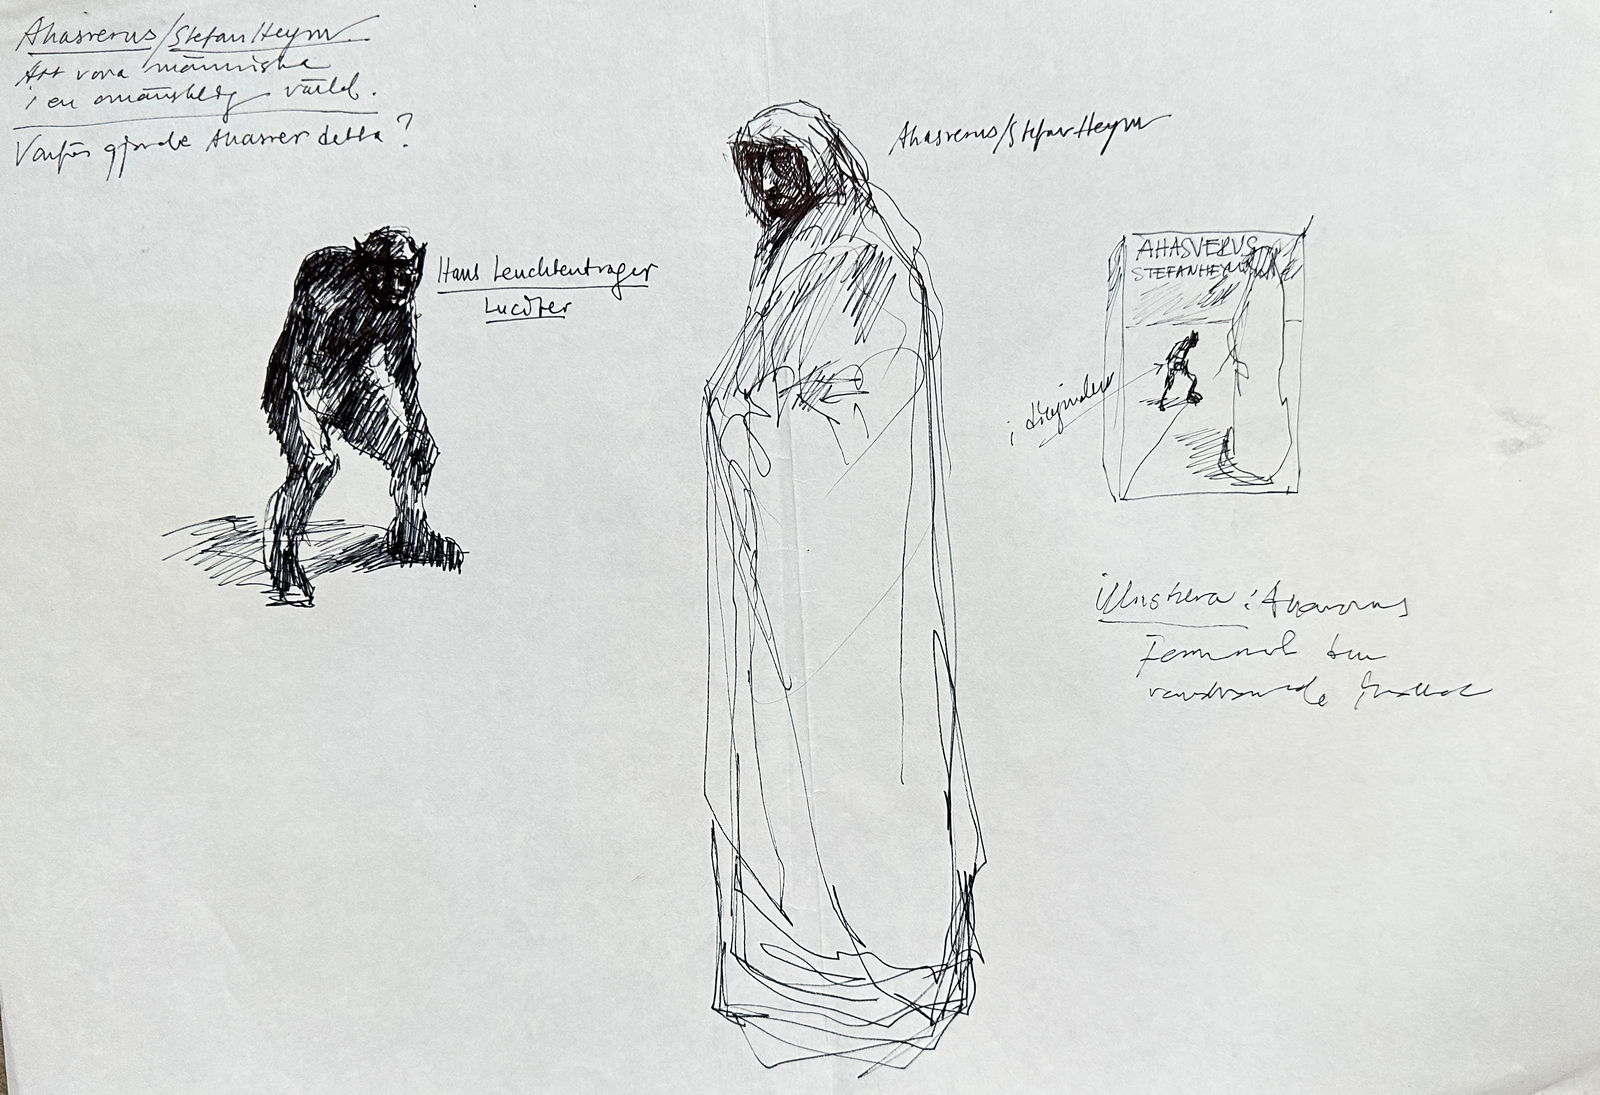 Ahasverus/Stefan Heym
Att vara människa
i en omänsklig värld.
Varför gjorde Ahasver detta?
Ahasverus/Stefan Heym
Hans Leuchtentrager
Lucifer
AHASVERUS
STEFAN HEYM
i
illustrera: Ahasverus